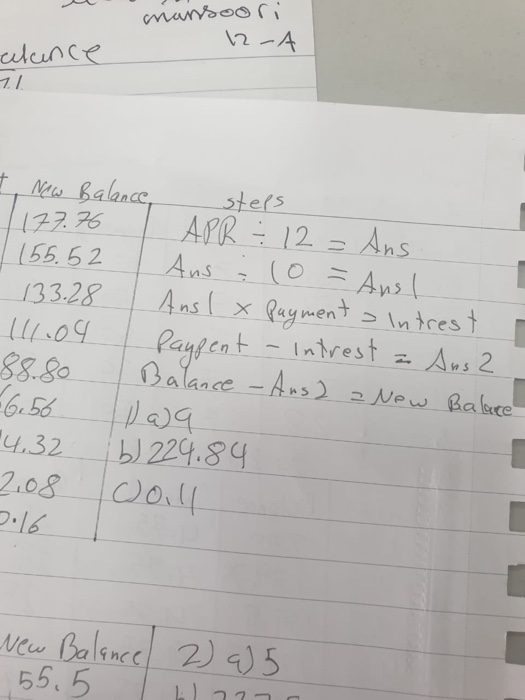 mansoori
12-A
alance
7.1
New Balance steps
177.76 APR ÷ 12 = Ans
155.52 Ans ÷ 10 = Ans1
133.28 Ans1 x Payment = Intrest
111.04 Paypent - Intrest = Ans 2
88.80 Balance - Ans2 = New Balace
6.56 1) a) 9
4.32 b) 224.84
2.08 c) 0.11
0.16
New Balance 2) a) 5
55.5